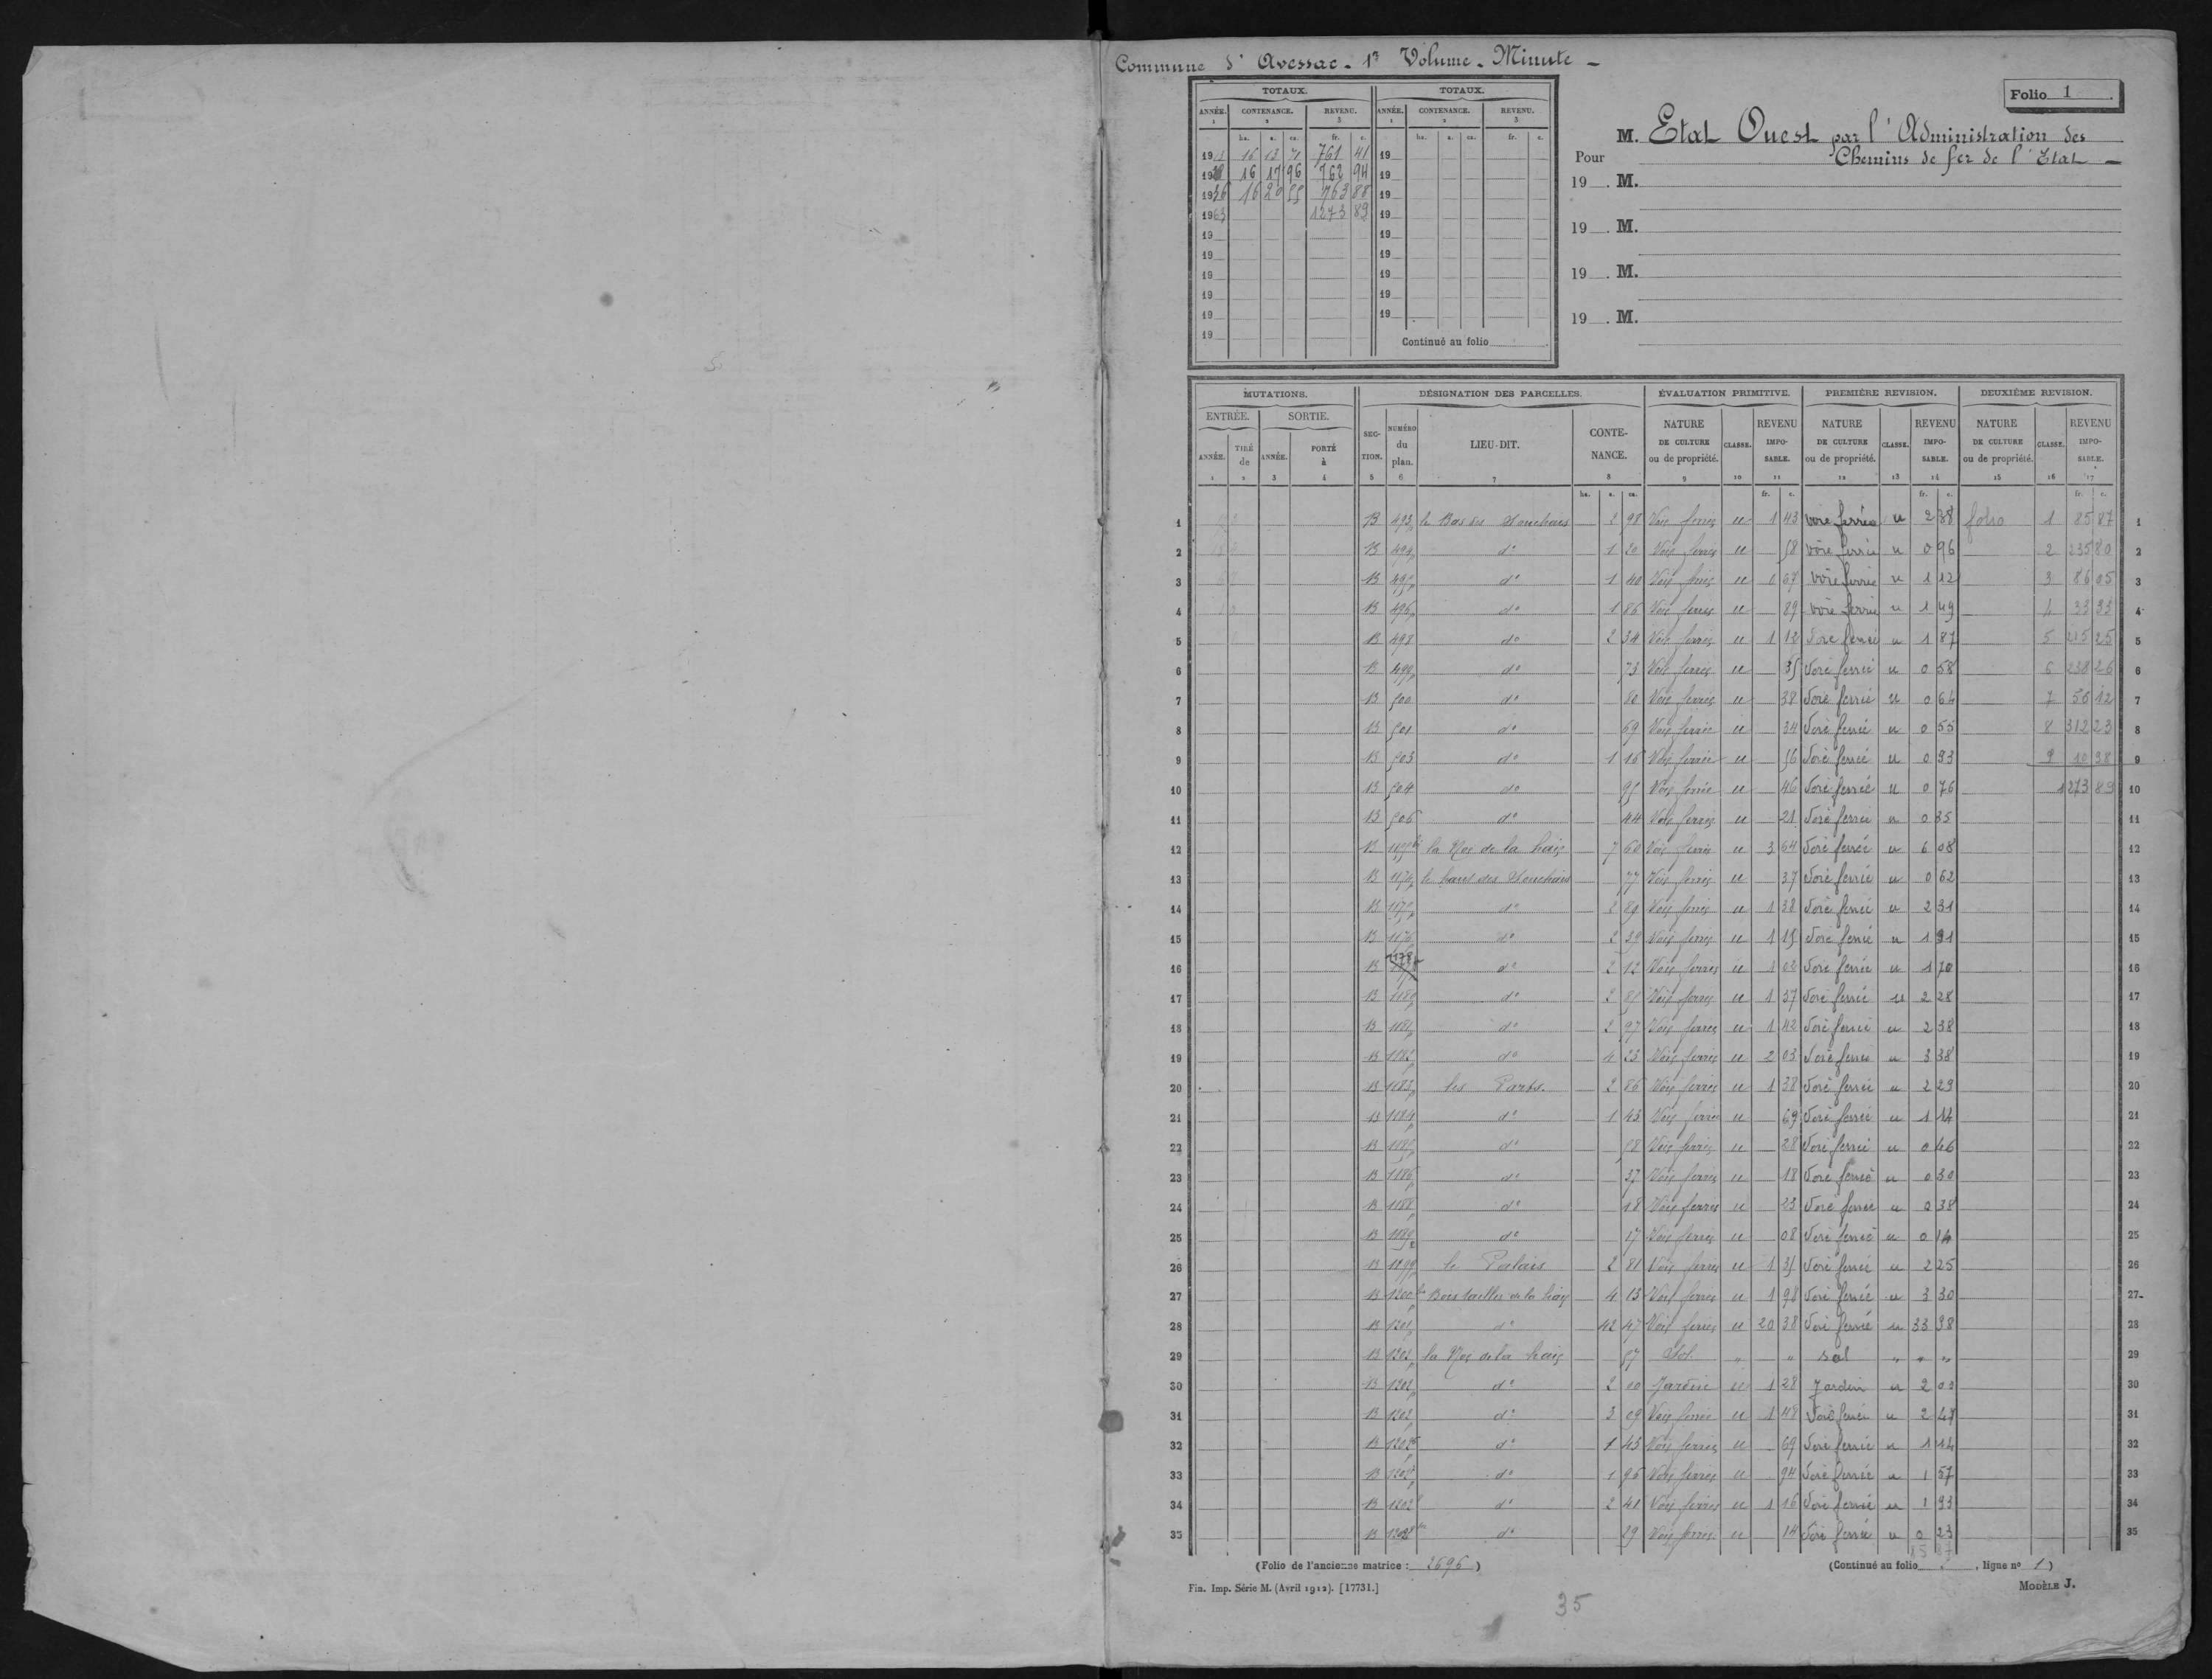 Commune d'Avessac - 1r Volume - Minute -
Folio 1
TOTAUX. TOTAUX.
ANNÉE. CONTENANCE. REVENU. ANNÉE. CONTENANCE. REVENU.
1 2 3 1 2 3
ha. a. ca. fr. c. ha. a. ca. fr. c.
16 13 71 761 41 19
16 17 96 762 94 19
1936 16 20 55 763 88 19
1963 1273 89 19
19 19
19 19
19 19
19 19
19 19
19
Continué au folio
M. Etat Ouest par l'Administration des
Pour Chemins de fer de l'Etat -
19 . M.
19 . M.
19 . M.
19 . M.
MUTATIONS. DÉSIGNATION DES PARCELLES. ÉVALUATION PRIMITIVE. PREMIÈRE REVISION. DEUXIÈME REVISION.
ENTRÉE. SORTIE.
ANNÉE. TIRÉ de ANNÉE. PORTÉ à SECTION. NUMÉRO du plan. LIEU-DIT. CONTENANCE. NATURE DE CULTURE ou de propriété. CLASSE. REVENU IMPOSABLE. NATURE DE CULTURE ou de propriété. CLASSE. REVENU IMPOSABLE. NATURE DE CULTURE ou de propriété. CLASSE. REVENU IMPOSABLE.
1 2 3 4 5 6 7 8 9 10 11 12 13 14 15 16 17
ha. a. ca. fr. c. fr. c. fr. c.
1 B 493p le Bas des 2 98 Voie ferrée u 1 43 voie ferrée u 2 38 folio 1 85 87 1
2 B 494p do 1 20 Voie ferrée u 58 voie ferrée u 0 96 2 235 80 2
3 B 495p do 1 40 Voie ferrée u 0 67 voie ferrée u 1 12 3 86 05 3
4 B 496p do 1 86 Voie ferrée u 89 voie ferrée u 1 49 4 33 93 4
5 B 498 do 2 34 Voie ferrée u 1 12 Voie ferrée u 1 87 5 215 25 5
6 B 499p do 73 Voie ferrée u 35 Voie ferrée u 0 58 6 238 26 6
7 B 500 do 80 Voie ferrée u 38 Voie ferrée u 0 64 7 56 12 7
8 B 501 do 69 Voie ferrée u 34 Voie ferrée u 0 55 8 312 23 8
9 B 503 do 1 16 Voie ferrée u 56 Voie ferrée u 0 93 9 10 38 9
10 B 504 do 95 Voie ferrée u 46 Voie ferrée u 0 76 1273 89 10
11 B 506 do 44 Voie ferrée u 21 Voie ferrée u 0 35 11
12 B la Noë de la haie 7 60 Voie ferrée u 3 64 Voie ferrée u 6 08 12
13 B 1174p le haut des 77 Voie ferrée u 37 Voie ferrée u 0 62 13
14 B 1175p do 2 89 Voie ferrée u 1 38 Voie ferrée u 2 31 14
15 B 1176p do 2 39 Voie ferrée u 1 15 Voie ferrée u 1 91 15
16 B 1178 do 2 12 Voie ferrée u 1 02 Voie ferrée u 1 70 16
17 B 1180p do 2 85 Voie ferrée u 1 37 Voie ferrée u 2 28 17
18 B 1181p do 2 97 Voie ferrée u 1 42 Voie ferrée u 2 38 18
19 B 1182p do 4 23 Voie ferrée u 2 03 Voie ferrée u 3 38 19
20 B 1183p les Parts. 2 86 Voie ferrée u 1 38 Voie ferrée u 2 29 20
21 B 1184p do 1 43 Voie ferrée u 69 Voie ferrée u 1 14 21
22 B 1185p do 58 Voie ferrée u 28 Voie ferrée u 0 46 22
23 B 1186p do 37 Voie ferrée u 18 Voie ferrée u 0 30 23
24 B 1188p do 48 Voie ferrée u 23 Voie ferrée u 0 38 24
25 B 1189p do 17 Voie ferrée u 08 Voie ferrée u 0 14 25
26 B 1199p le Palais 2 81 Voie ferrée u 1 35 Voie ferrée u 2 25 26
27 B 1200p le Bois taillis de la haie 4 13 Voie ferrée u 1 98 Voie ferrée u 3 30 27
28 B 1201p do 42 47 Voie ferrée u 20 38 Voie ferrée u 33 98 28
29 B 1202p la Noë de la haie 57 Sol " " sol " " " 29
30 B 1202p do 2 00 Jardin u 1 28 Jardin u 2 00 30
31 B 1202p do 3 09 Voie ferrée u 1 48 Voie ferrée u 2 47 31
32 B 1202 do 1 43 Voie ferrée u 69 Voie ferrée u 1 14 32
33 B 1202 do 1 96 Voie ferrée u 94 Voie ferrée u 1 57 33
34 B 1202 do 2 41 Voie ferrée u 1 16 Voie ferrée u 1 93 34
35 B do 29 Voie ferrée u 14 Voie ferrée u 0 23 35
(Folio de l'ancienne matrice : 2696 ) (Continué au folio , ligne no 1)
Fin. Imp. Série M. (Avril 1912). [17731.] MODÈLE J.
35